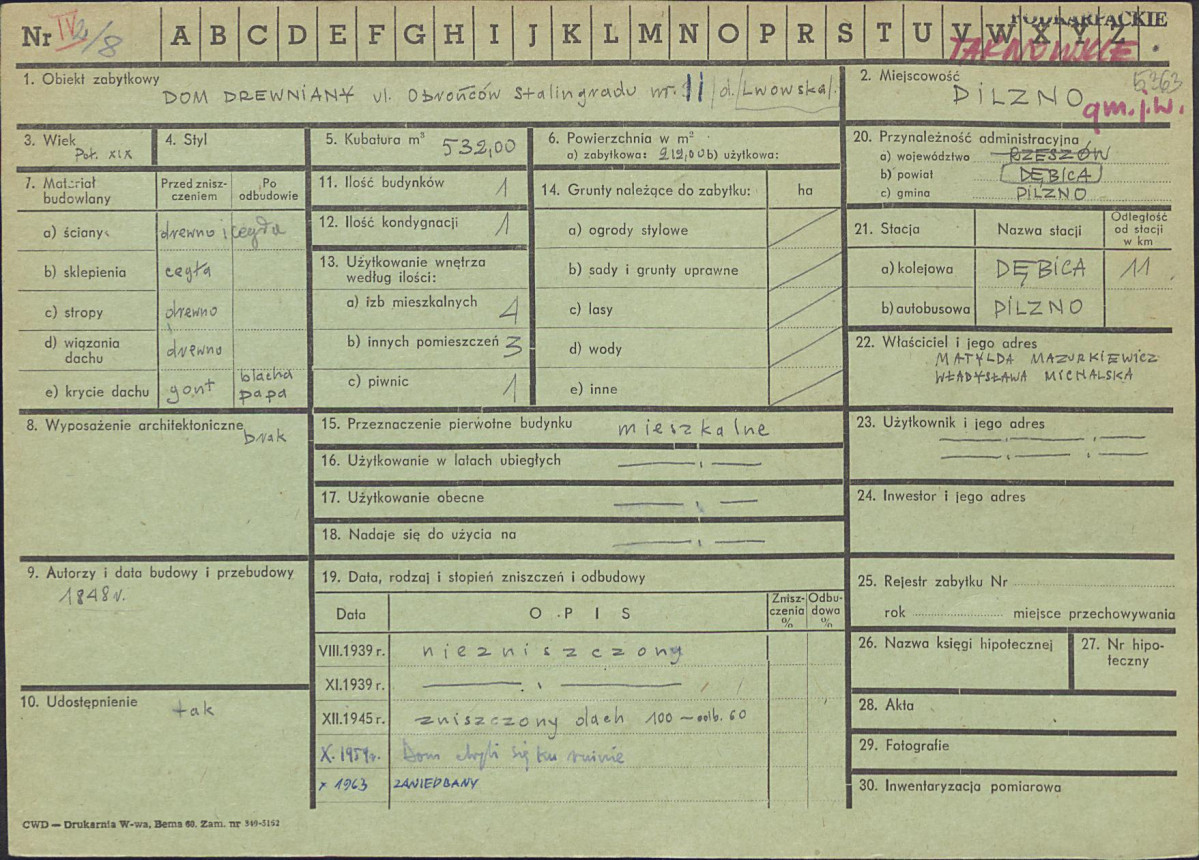 Nr IV 2/8 A B C D E F G H I J K L M N O P R S T U V W X Y Z PODKARPACKIE
TARNOWSKIE
1. Obiekt zabytkowy
DOM DREWNIANY ul. Obrońców Stalingradu nr. 11 /d. Lwowska/.
2. Miejscowość 5363
PILZNO gm. j.w.
3. Wiek
Poł. XIX
4. Styl
5. Kubatura m³ 532,00
6. Powierzchnia w m²
a) zabytkowa: 212,00 b) użytkowa:
20. Przynależność administracyjna
a) województwo RZESZÓW
b) powiat DĘBICA
c) gmina PILZNO
7. Materiał budowlany
Przed zniszczeniem
Po odbudowie
a) ściany drewno i cegła
b) sklepienia cegła
c) stropy drewno
d) wiązania dachu drewno
e) krycie dachu gont blacha papa
11. Ilość budynków 1
12. Ilość kondygnacji 1
13. Użytkowanie wnętrza
według ilości:
a) izb mieszkalnych 4
b) innych pomieszczeń 3
c) piwnic 1
14. Grunty należące do zabytku: ha
a) ogrody stylowe
b) sady i grunty uprawne
c) lasy
d) wody
e) inne
21. Stacja Nazwa stacji Odległość od stacji w km
a) kolejowa DĘBICA 11
b) autobusowa PILZNO
22. Właściciel i jego adres
MATYLDA MAZURKIEWICZ
WŁADYSŁAWA MICHALSKA
8. Wyposażenie architektoniczne
brak
15. Przeznaczenie pierwotne budynku mieszkalne
16. Użytkowanie w latach ubiegłych —„—
17. Użytkowanie obecne —„—
18. Nadaje się do użycia na —„—
23. Użytkownik i jego adres
—„— —„—
—„— —„—
24. Inwestor i jego adres
9. Autorzy i data budowy i przebudowy
1848 r.
10. Udostępnienie
tak
19. Data, rodzaj i stopień zniszczeń i odbudowy
Data OPIS Zniszczenia % Odbudowa %
VIII.1939 r. niezniszczony
XI.1939 r. —„—
XII.1945 r. zniszczony dach 100 — odb. 60
X. 1959 r. Dom chyli się ku ruinie
X 1963 ZANIEDBANY
25. Rejestr zabytku Nr
rok miejsce przechowywania
26. Nazwa księgi hipotecznej
27. Nr hipoteczny
28. Akta
29. Fotografie
30. Inwentaryzacja pomiarowa
CWD — Drukarnia W-wa, Bema 60. Zam. nr 349-5152